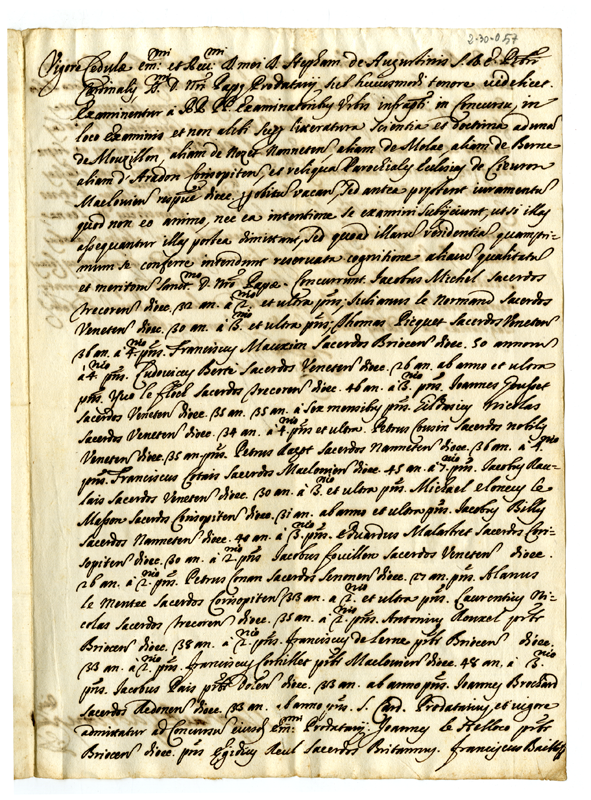 2-30-057
Vigore Cedulæ em:mi et Reu:mi D. mei D. Stephani de Augustinis S.R.E. Pbri
Cardinalis, D. Nri Papæ Prodatarij, sub huiusmodi tenore videlicet.
Examinentur à RR. PP. Examinatoribus Urbis infrascti in Concursu, in
loco Examinis et non alibi super litteratura scientia et doctrina ad unam
de Mouzillon, aliam de Nozet Nanneten aliam de Molac aliam de Berne
aliam d'Aradon Corisopiten, et reliqua Parochialis Ecclesias de Couron
Maclovien nuper diœc. obitu vacan, sed antea præstent iuramentum
quod non eo animo, nec ea intentione se examini subijciunt, ut si illas
assequantur illas postea dimittant, sed quod illarum residentia quampri-
mum se conferre intendunt reservata cognitione aliarum qualitatum
et meritorum Sanct.mo D. Nro Papæ. Concurrunt Jacobus Michel sacerdos
trecoren diœc. 32 an. à 2.nio et ultra pns; Julianus le Normand sacerdos
Veneten diœc. 30 an. à 3.nio et ultra pns; Thomas Picquet Sacerdos Veneten
36 an. à 4.nio pns. Franciscus Mauxion Sacerdos Briocen diœc. 50 annorum
à 4.nio pns. Ludovicus Berté Sacerdos Veneten diœc. 26 an. ab anno et ultra
pns. Yvo le Floch sacerdos trecoren diœc. 46 an. à 3.nio pns. Joannes Jousset
sacerdos Veneten diœc. 35 an. à sex mensibus pns. Nicolas
sacerdos Veneten diœc. 34 an. à 4.nio pns et ultra. Petrus Cousin sacerdos nobilis
Veneten diœc. 35 an. pns. Petrus Sacerdos Nanneten diœc. 36 an. à 4.nio
pns. Franciscus Sacerdos Maclovien diœc. 45 an. à 7.nio pns. Jacobus Rau-
lais Sacerdos Veneten diœc. 30 an. à 3.nio et ultra pns. Michael le
Masson Sacerdos Corisopiten diœc. 31 an. ab anno et ultra pns. Jacobus Billy
Sacerdos Nanneten diœc. 40 an. à 3.nio pns. Eduardus Malartret Sacerdos Cori-
sopiten diœc. 30 an. à 2.nio pns Jacobus fouillon sacerdos Veneten diœc.
26 an. à 2.nio pns. Petrus Conan Sacerdos diœc. 27 an. pns. Alanus
le Mentec Sacerdos Corisopiten 33 an. à 2.nio et ultra pns. Laurentius Ni-
colas sacerdos trecoren diœc. 35 an. à 2.nio pns. Antonius Rouxel prbr
Briocen diœc. 38 an. à 2.nio pns. franciscus de Lerne prbr Briocen diœc.
33 an. à 2.nio pns. franciscus Corhiller prbr Maclovien diœc. 48 an. à 3.nio
pns. Jacobus Pais prbr Dolen diœc. 33 an. ab anno pns. Joannes Brochard
Sacerdos Redonen diœc. 33 an. ab anno pns. S. Card. Prodatarius, et vigore
admittatur ad Concursum eiusd. em:mi Prodatarij. Joannes le Helloco prbr
Briocen diœc. pns Egidius Reul Sacerdos Britannus. franciscus